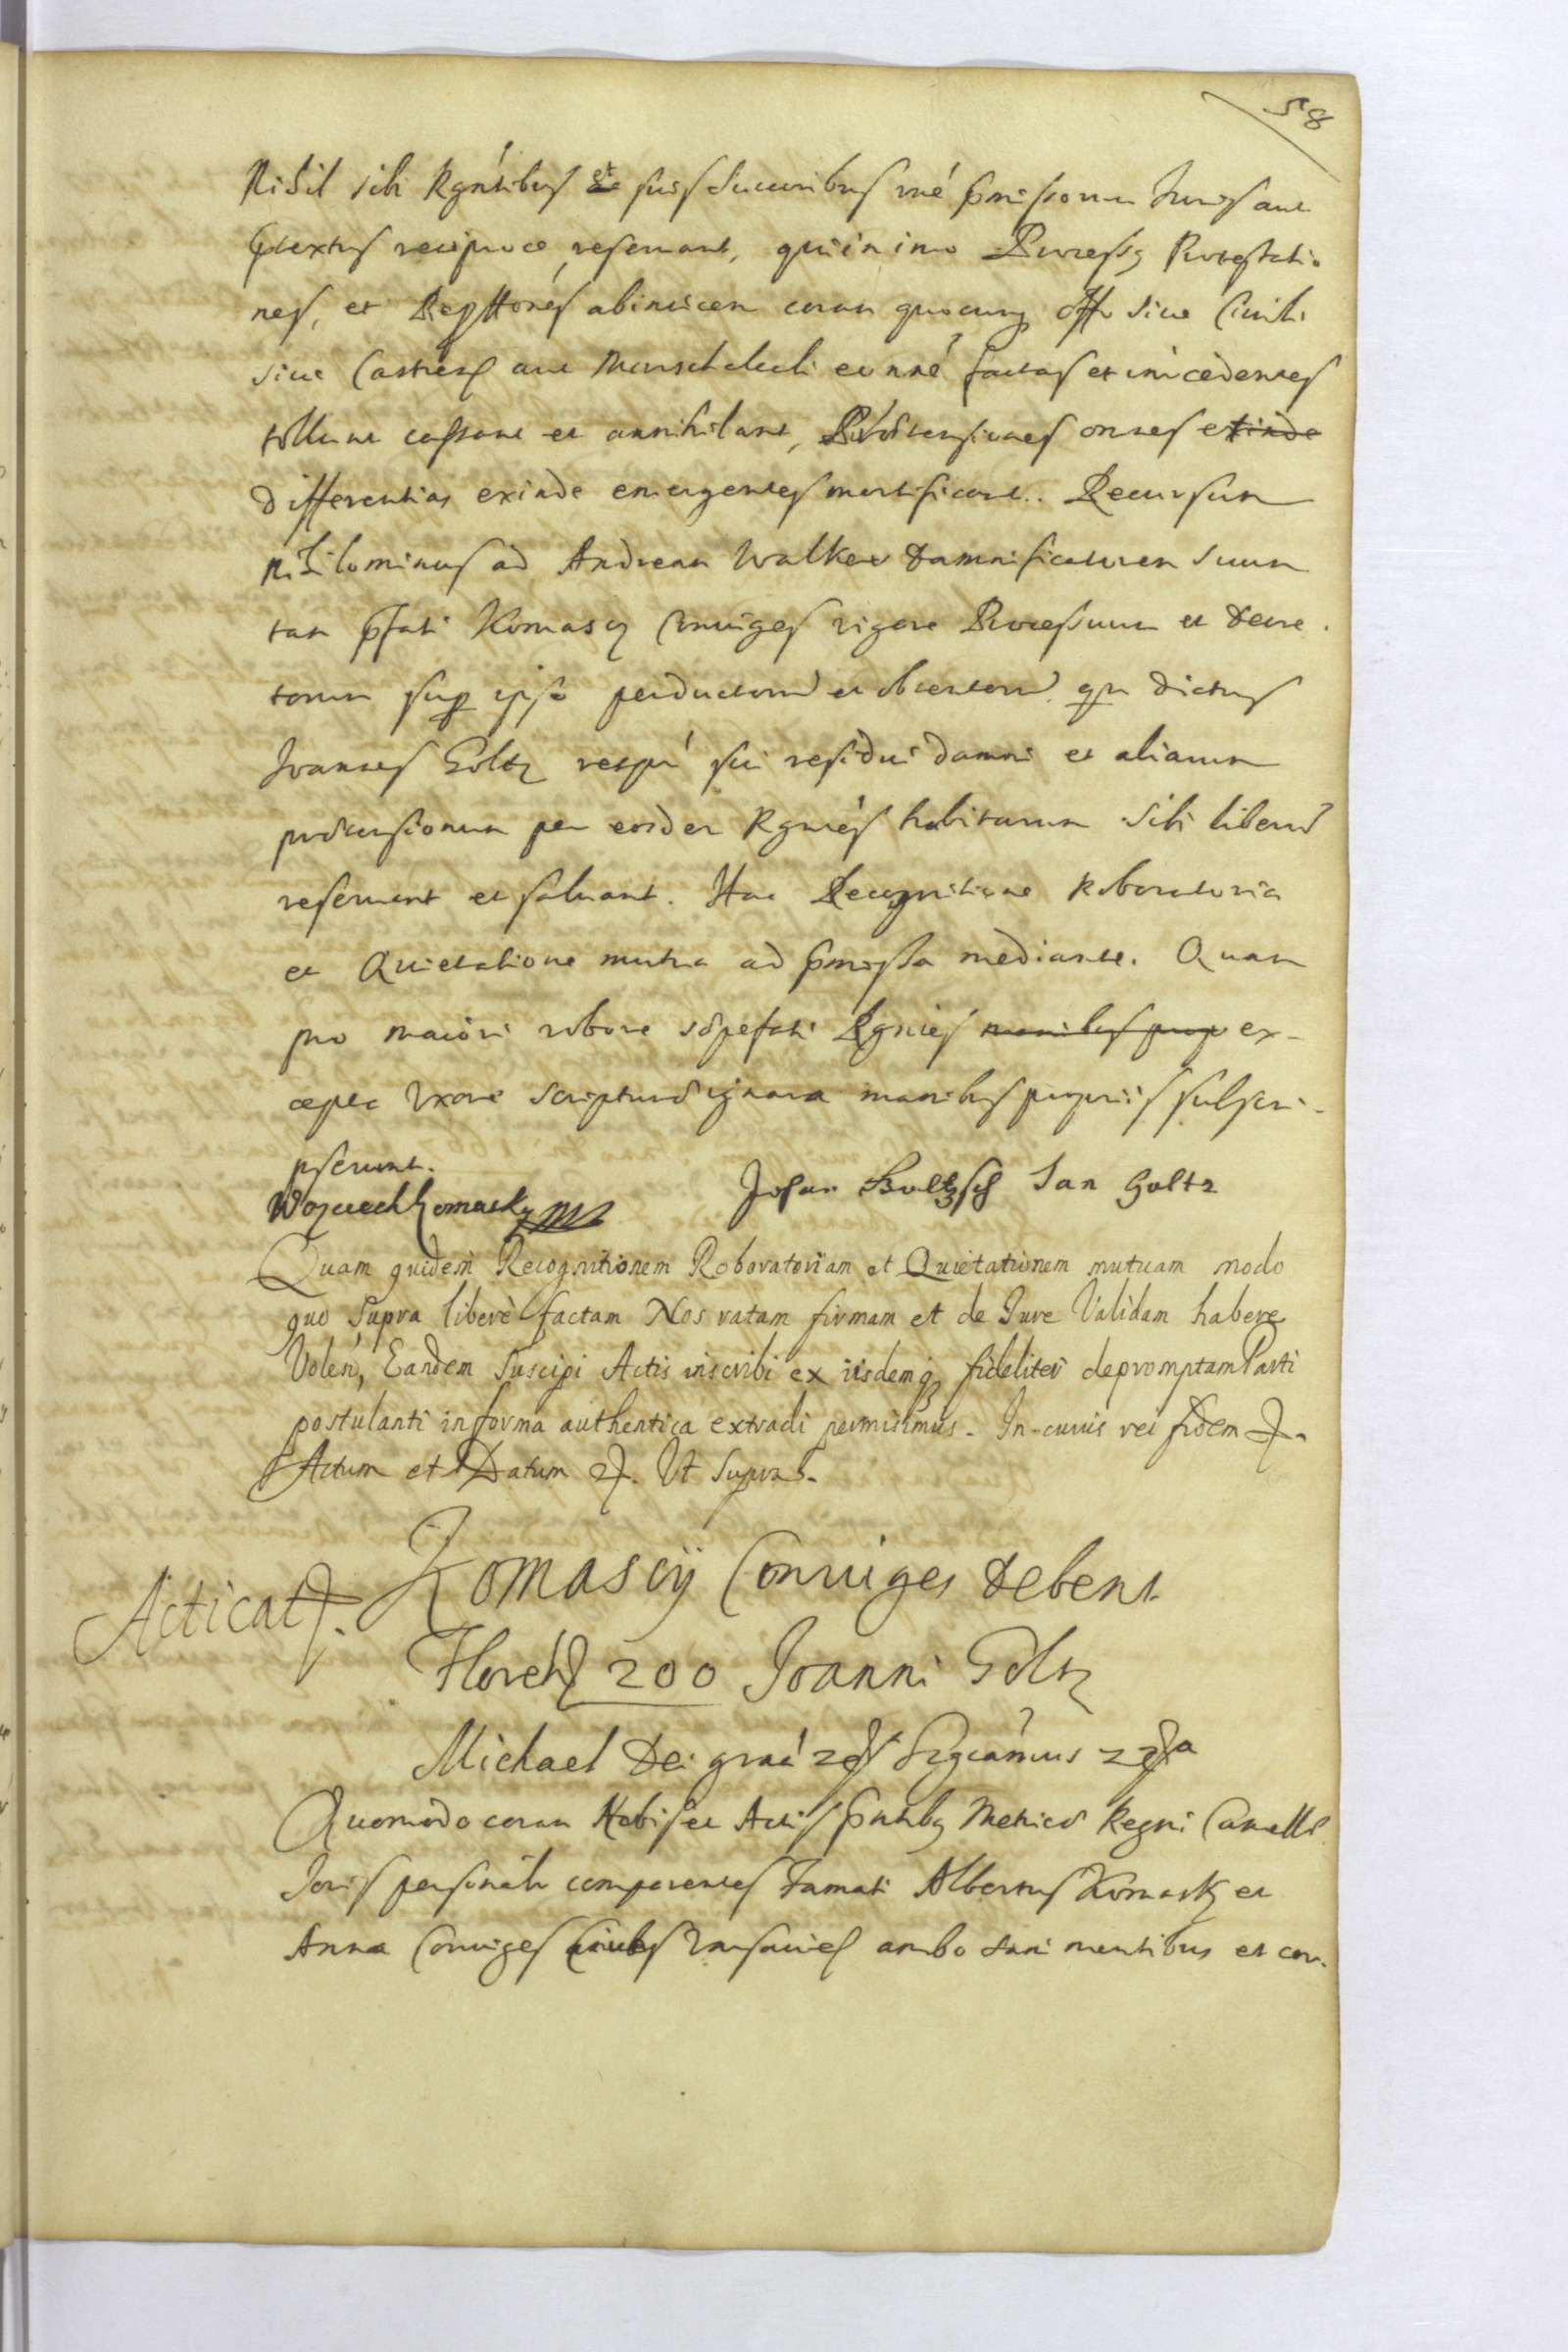 58
Nihil sibi Rgn̄tibus et suis successoribus rn̄e p̄missorum Juris aut
p̄textus reciproce reservant, quin imo Processq Protestatio
nes, et Repttōnes abinvicem coram quocunq Offo sive Civili
sive Castren̄ aut Marschalcali eonn̄e factas et invicedentes
tollunt cassant et annihilant, Prætensiones omnes exinde
differentias exinde emergentes mortificant. Recursum
nihilominus ad Andream Walker Damnificatorem suum
tam p̄fati Komascy Coniuges vigore Processuum et Decre
torum sup ipso perductorum et obtentorum qm dictus
Joannes Goltz respū sui residui damni et aliarum
prætensionum per eosdem Rgnt̄es habitarum sibi liberum
reservant et salvant. Hac Recognitione Roboratoria
et Quietatione mutua ad p̄missa mediante. Quam
pro maiori robore sæpefati Rgntes manibus prop ex-
cepta Uxore scripturæ ignara manibus proprijs subscri-
pserunt.
Woyciech Komasky mp Johan Goltzsch Jan Goltz
Quam quidem Recognitionem Roboratoriam et Quietationem mutuam modo
quo supra liberè factam Nos ratam firmam et de Jure Validam habere
Volen̄, Eandem Suscipi Actis inscribi ex iisdemq fideliter depromptam Parti
postulanti in forma authentica extradi permisimus. In cuius rei fidem etc.
Actum et Datum etc. Ut Supra.
Acticat.
Komascÿ Coniuges Debent
Floren̄ 200 Joanni Goltz
Michael Dei gra̅ etc Sign̄camus etc
Quomodo coram Nobis et Actis p̄ntibq Metrices Regni Cancella
Joris personalr comparentes Famati Albertus Komasky et
Anna Coniuges Cives Varsavien̄ ambo sani mentibus et cor-